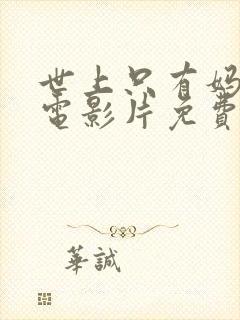 世上只有妈
電影片免費
華誠